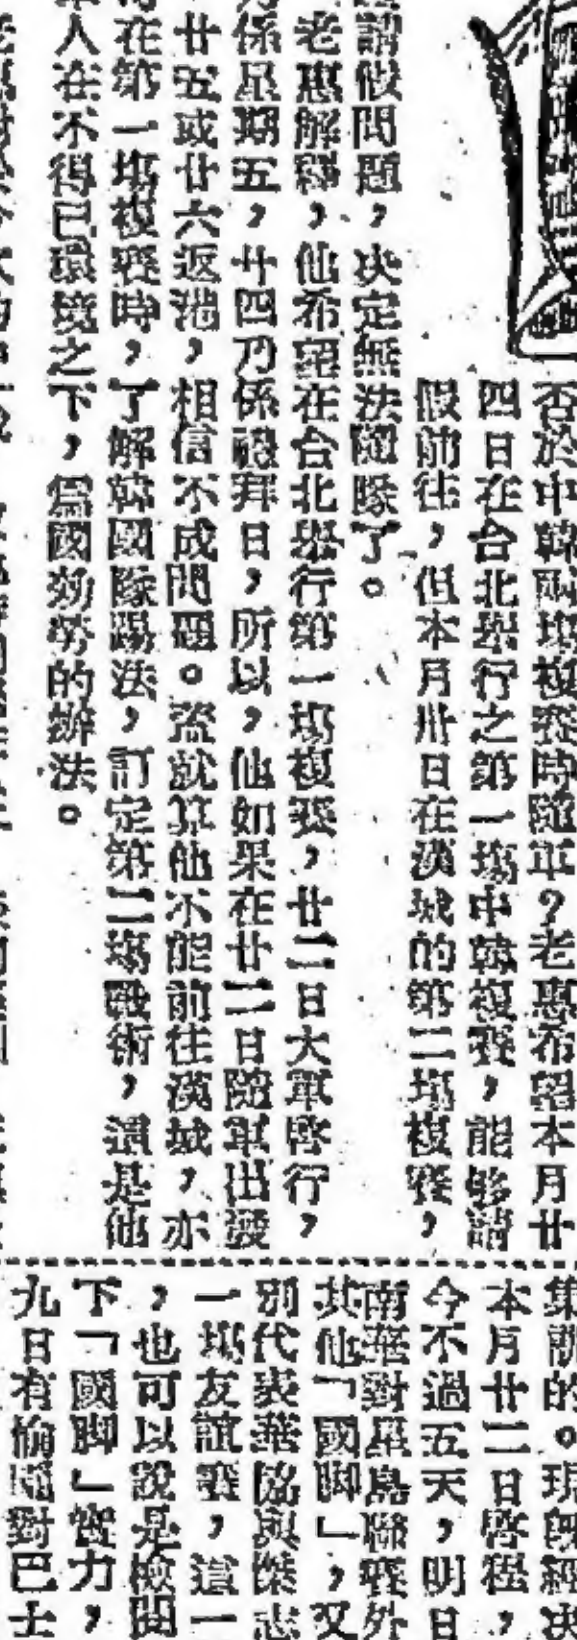 否於中韓兩塲複賽時隨軍？老惠希望本月廿
四日在台北舉行之第一塲中韓複賽，能够請
假前往，但本月卅日在漢城的第二塲複賽，
請假問題，決定無法隨隊了。
老惠解釋，他希望在台北舉行第一塲複賽，廿二日大軍啓行，
係星期五，廿四乃係禮拜日，所以，他如果在廿二日隨軍出發
廿五或廿六返港，相信不成問題。盜就算他不能前往漢城，亦
在第一塲複賽時，了解韓國隊踢法，訂定第二塲戰術，還是他
人在不得已環境之下，爲國効勞的辦法。
集訓的。現旣經決
本月廿二日啓程，
今不過五天，明日
南華對星島聯賽外
其他「國脚」，又
別代表華協與傑志
一塲友誼賽，這一
，也可以說是檢閱
下「國脚」實力，
九日有愉園對巴士